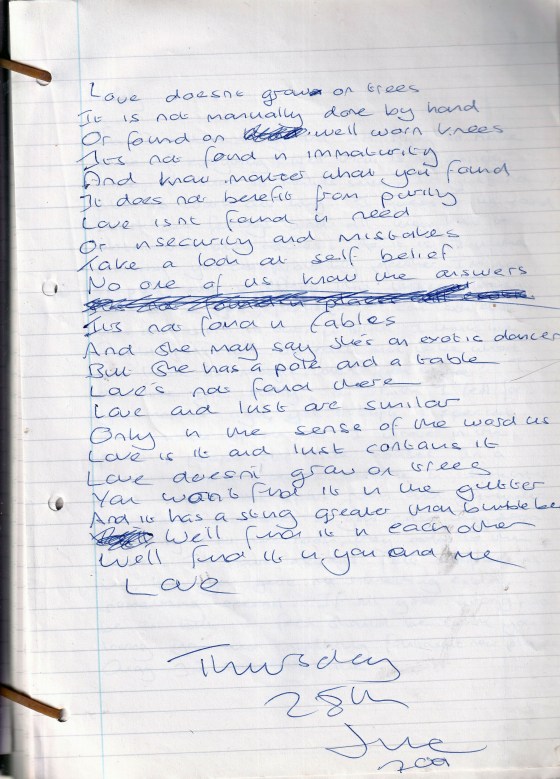 Love doesnt grow on trees
It is not manually done by hand
Or found on well worn knees
Its not found in immaturity
And know matter what you found
It does not benefit from purity
Love isnt found in need
Or insecurity and mistakes
Take a look at self belief
No one of us know the answers
Its not found in fables
And she may say shes an exotic dancer
But she has a pole and a table
Love's not found there
Love and lust are similar
Only in the sense of the word us
Love is it and lust contains it
Love doesnt grow on trees
You wont find it in the gutter
And it has a sting greater than bumble be
We'll find it in each other
We'll find it in you and me
Love
Thursday
28th